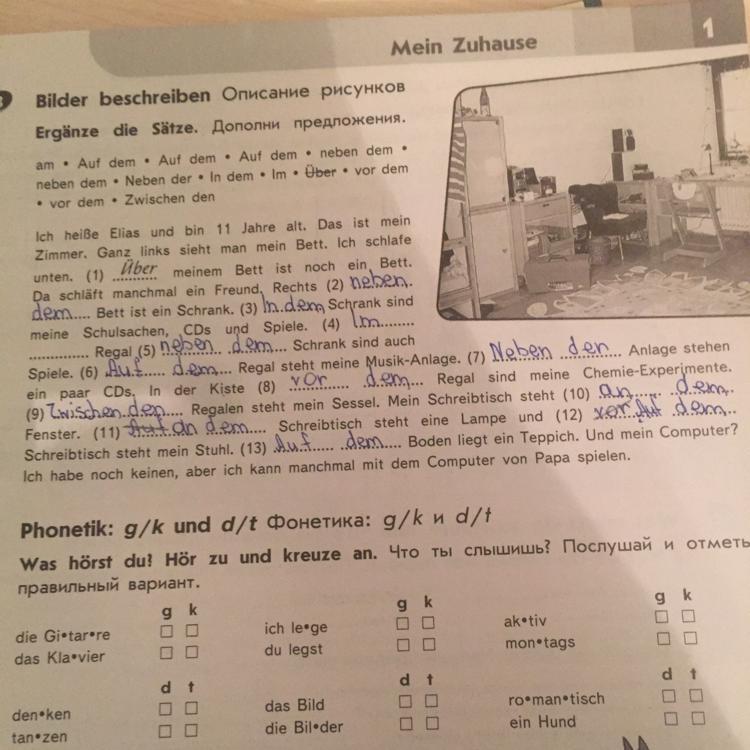 Mein Zuhause
1
Bilder beschreiben Описание рисунков
Ergänze die Sätze. Дополни предложения.
am • Auf dem • Auf dem • Auf dem • neben dem •
neben dem • Neben der • In dem • Im • Über • vor dem
• vor dem • Zwischen den
Ich heiße Elias und bin 11 Jahre alt. Das ist mein
Zimmer. Ganz links sieht man mein Bett. Ich schlafe
unten. (1) Über meinem Bett ist noch ein Bett.
Da schläft manchmal ein Freund. Rechts (2) neben
dem Bett ist ein Schrank. (3) In dem Schrank sind
meine Schulsachen, CDs und Spiele. (4) Im
Regal (5) neben dem Schrank sind auch
Spiele. (6) Auf dem Regal steht meine Musik-Anlage. (7) Neben der Anlage stehen
ein paar CDs. In der Kiste (8) vor dem Regal sind meine Chemie-Experimente.
(9) Zwischen den Regalen steht mein Sessel. Mein Schreibtisch steht (10) an dem
Fenster. (11) an dem Schreibtisch steht eine Lampe und (12) dem
Schreibtisch steht mein Stuhl. (13) Auf dem Boden liegt ein Teppich. Und mein Computer?
Ich habe noch keinen, aber ich kann manchmal mit dem Computer von Papa spielen.
Phonetik: g/k und d/t Фонетика: g/k и d/t
Was hörst du? Hör zu und kreuze an. Что ты слышишь? Послушай и отметь
правильный вариант.
g k g k g k
die Gi•tar•re ich le•ge ak•tiv
das Kla•vier du legst mon•tags
d t d t d t
den•ken das Bild ro•man•tisch
tan•zen die Bil•der ein Hund